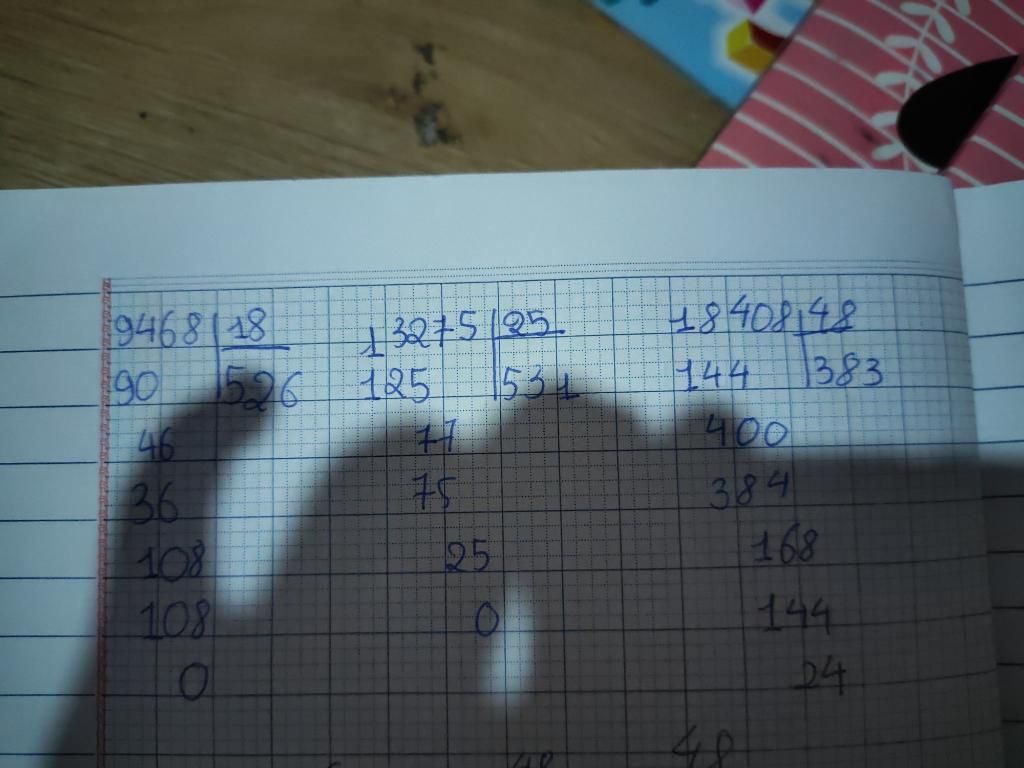 9468 18 13275 25 18408 48
90 526 125 531 144 383
46 77 400
36 75 384
108 25 168
108 0 144
0 24
48 48